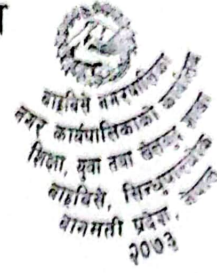 बाह्रविसे नगरपालिका
नगर कार्यपालिकाको कार्यालय
शिक्षा, युवा तथा खेलकुद शाखा
बाह्रविसे, सिन्धुपाल्चोक
बागमती प्रदेश,
२०७३